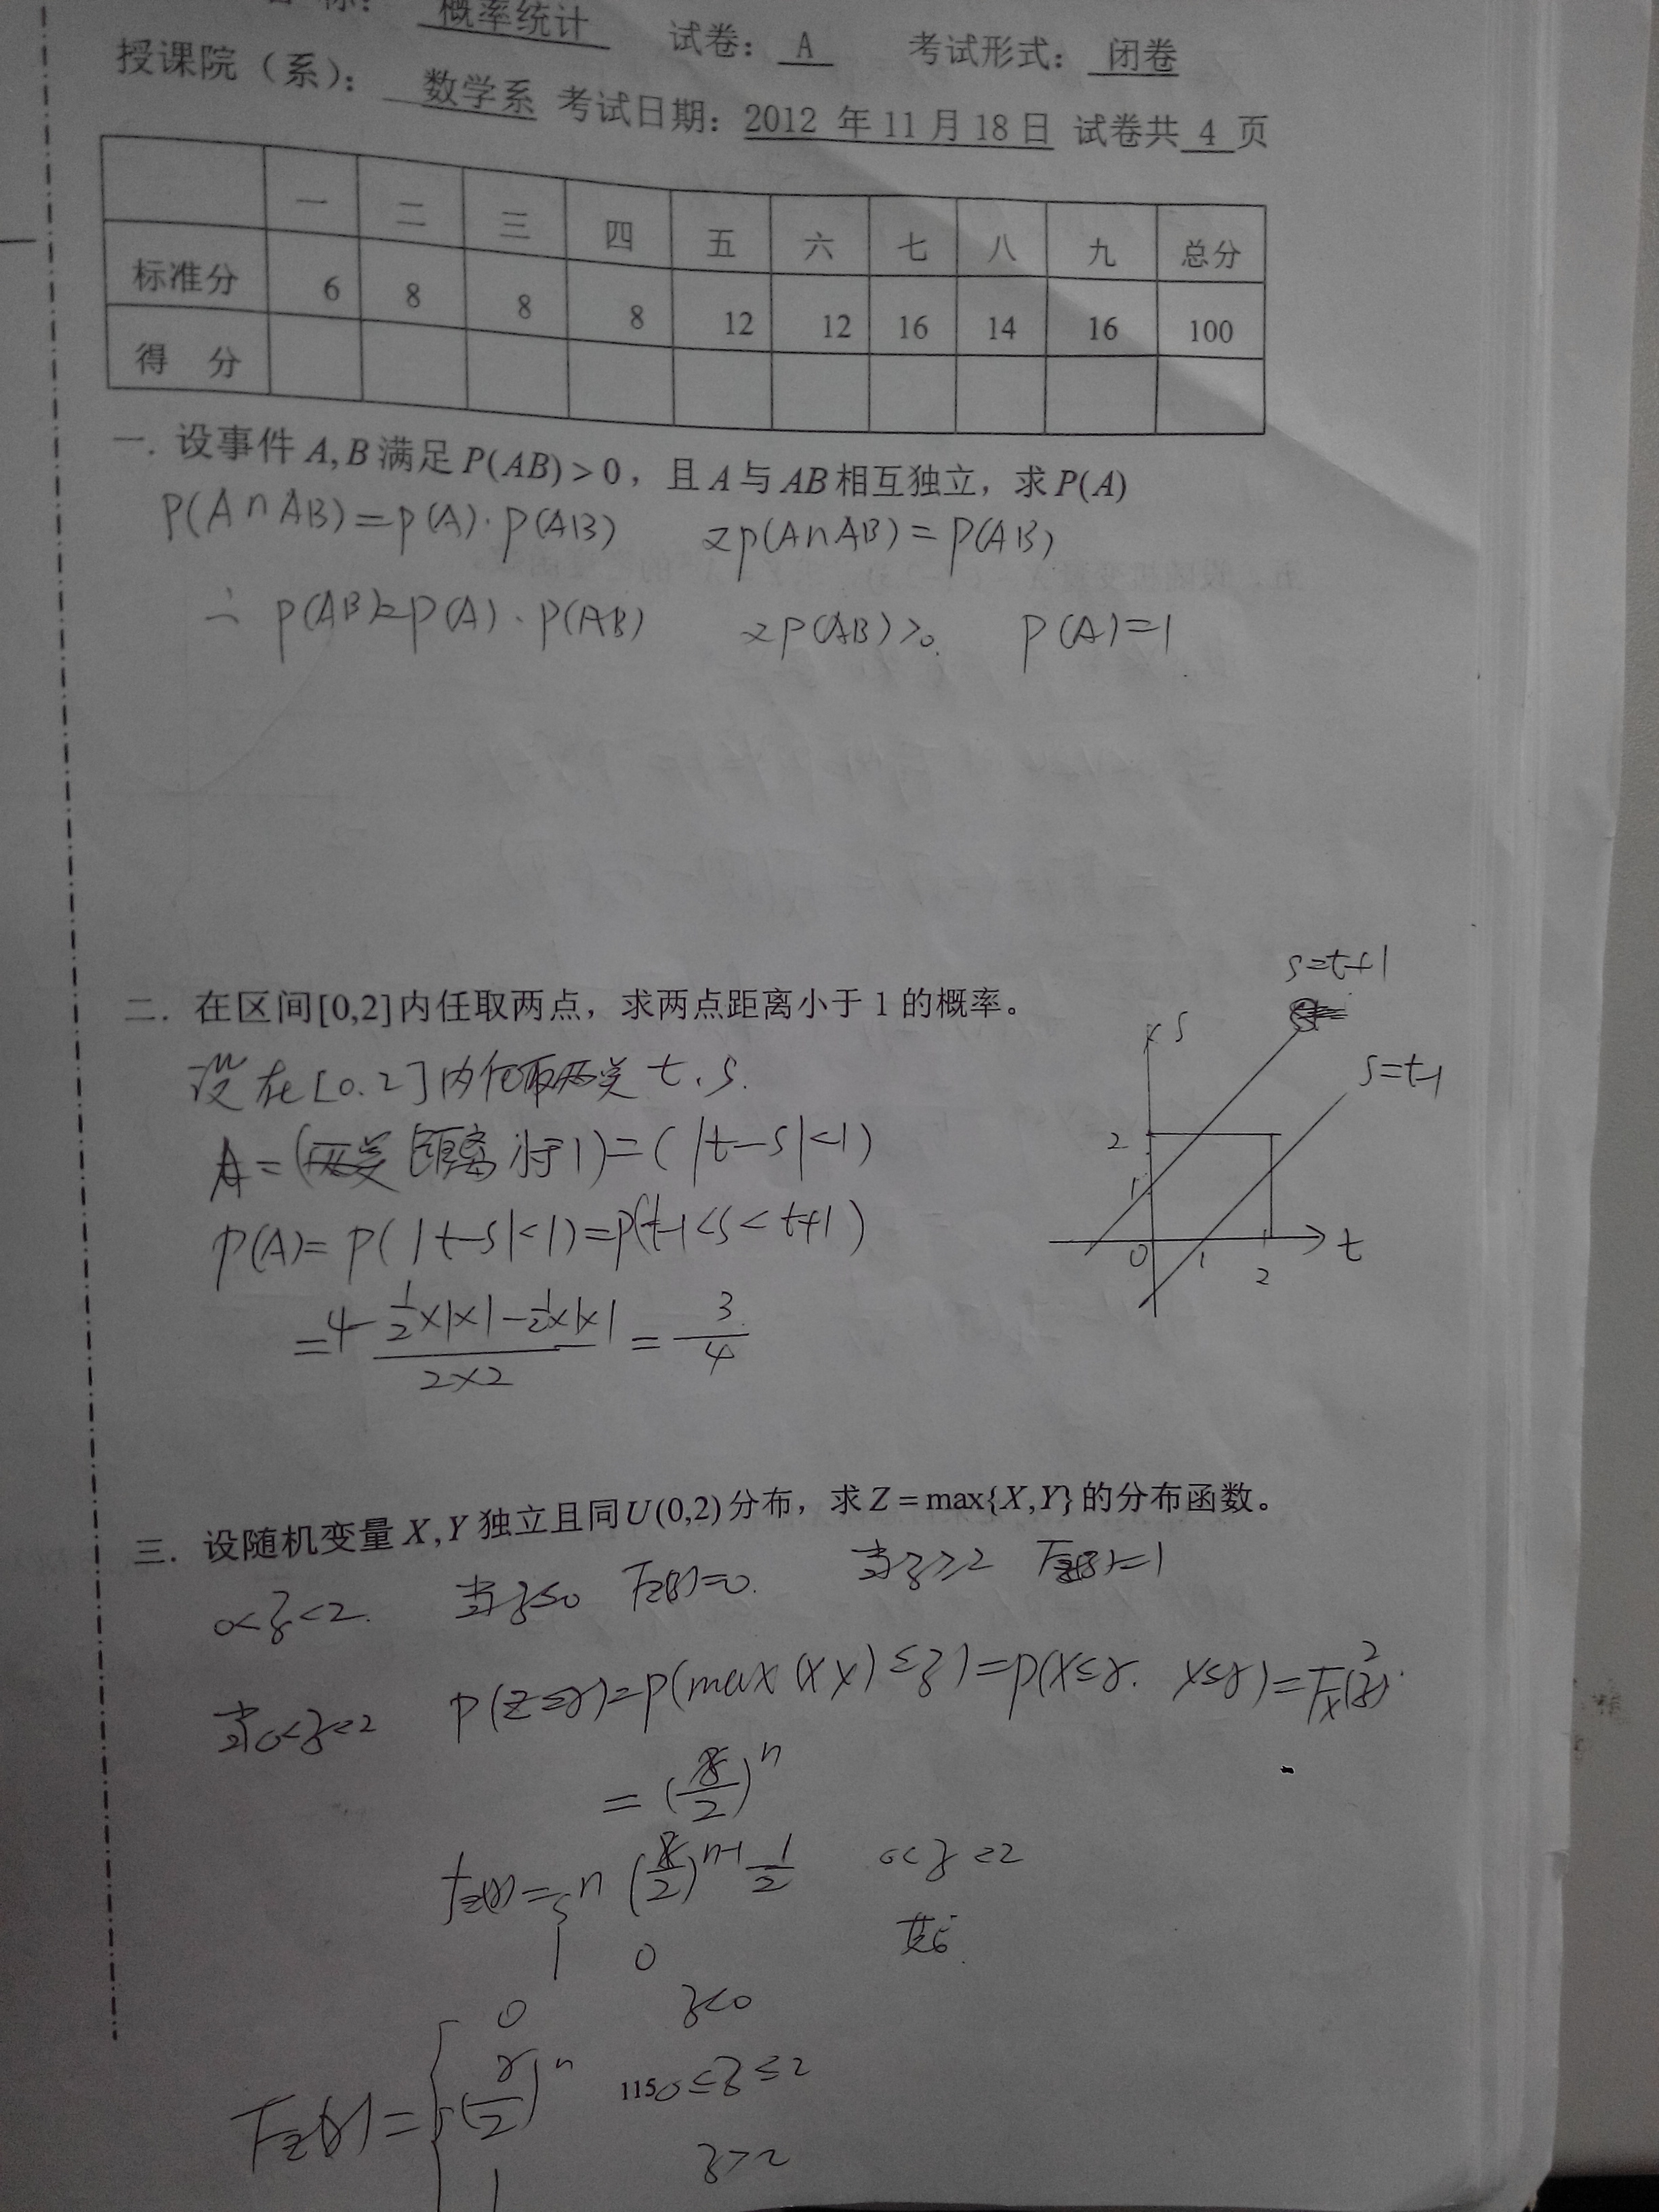 概率统计 试卷: A 考试形式: 闭卷
授课院（系）: 数学系 考试日期: 2012 年 11 月 18 日 试卷共 4 页
一 二 三 四 五 六 七 八 九 总分
标准分 6 8 8 8 12 12 16 14 16 100
得 分
一. 设事件 A, B 满足 P(AB) > 0，且 A 与 AB 相互独立，求 P(A)
P(A∩AB)=P(A)·P(AB) 又P(A∩AB)=P(AB)
∴ P(AB)=P(A)·P(AB) 又P(AB)>0. P(A)=1
二. 在区间[0,2]内任取两点，求两点距离小于 1 的概率。
设在[0.2]内任取两点 t.s.
A=(两点距离小于1)=(|t-s|<1)
P(A)=P(|t-s|<1)=P(t-1<s<t+1)
=4-½×1×1-½×1×1/2×2=3/4
s=t+1
s=t-1
s
2
1
0 1 2 t
三. 设随机变量 X,Y 独立且同U(0,2)分布，求 Z = max{X,Y} 的分布函数。
0<z<2. 当z≤0 Fz(z)=0. 当z≥2 Fz(z)=1
当0<z<2 P(Z≤z)=P(max(XY)≤z)=P(X≤z. Y≤z)=Fx²(z).
=(z/2)ⁿ
fz(z)={n(z/2)ⁿ⁻¹ 1/2 0<z<2
0 其它.
Fz(z)={0 z<0
(z/2)ⁿ 0≤z≤2
1 z>2
115